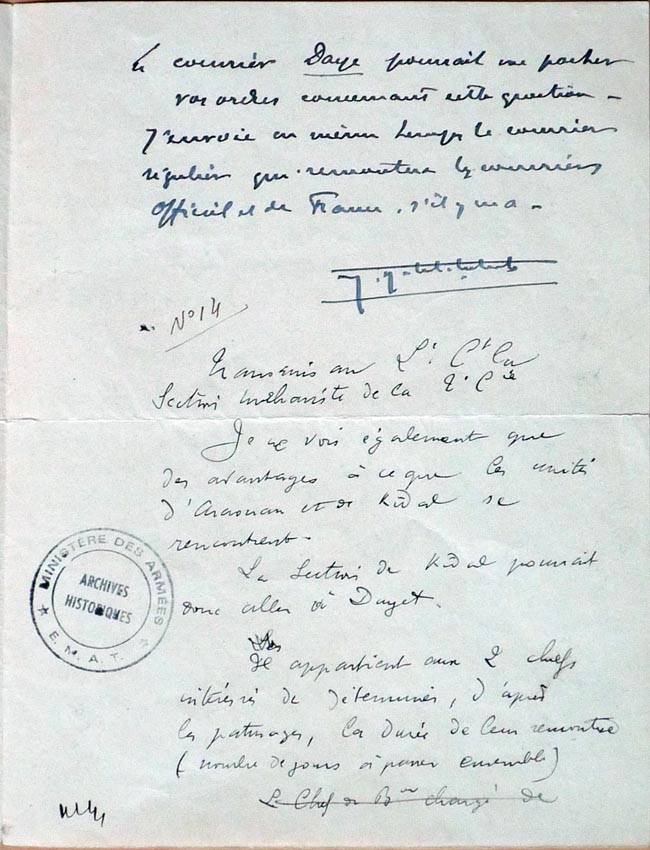 Le courrier Daye pourrait me porter
vos ordres concernant cette question -
J'envoie en même temps le courrier
régulier qui remontera les courriers
Officiel et de France, s'il y en a -
N° 14
Transmis au Lt Ct la
Section méhariste de la Cie
Je ne vois également que
des avantages à ce que les unités
d'Araouan et de Kidal se
rencontrent.
La Section de Kidal pourrait
donc aller à Dayet.
Il appartient aux 2 chefs
intéressés de déterminer, d'après
les paturages, la durée de leur rencontre
(nombre de jours à passer ensemble)
Le Chef de Bon chargé de
MINISTÈRE DES ARMÉES
ARCHIVES
HISTORIQUES
E. M. A. T.